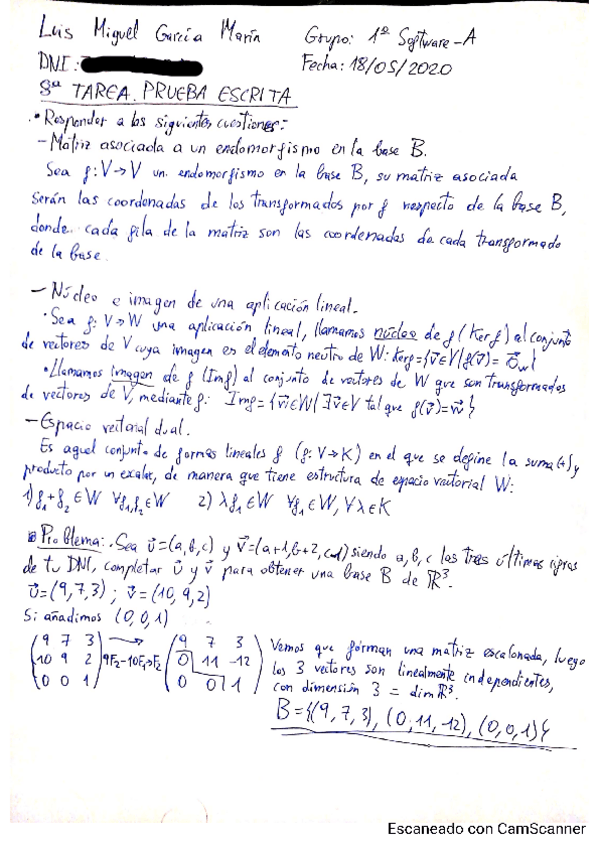 Luis Miguel García Marín Grupo: 1º Software-A
DNI: Fecha: 18/05/2020
8ª TAREA. PRUEBA ESCRITA
• Responder a las siguientes cuestiones:
- Matriz asociada a un endomorfismo en la base B.
Sea f: V→V un endomorfismo en la base B, su matriz asociada
serán las coordenadas de los transformados por f respecto de la base B,
donde cada fila de la matriz son las coordenadas de cada transformado
de la base.
- Núcleo e imagen de una aplicación lineal.
• Sea f: V→W una aplicación lineal, llamamos núcleo de f (Ker f) al conjunto
de vectores de V cuya imagen es el elemento neutro de W: Ker f = {v⃗∈V/f(v⃗)= 0⃗w}
• Llamamos imagen de f (Im f) al conjunto de vectores de W que son transformados
de vectores de V, mediante f: Im f = {w⃗∈W/∃v⃗∈V tal que f(v⃗)=w⃗}
- Espacio vectorial dual.
Es aquel conjunto de formas lineales f (f: V→K) en el que se define la suma(+) y
producto por un escalar, de manera que tiene estructura de espacio vectorial W:
1) f₁+f₂∈W ∀f₁,f₂∈W 2) λf₁∈W ∀f₁∈W, ∀λ∈K
Problema: Sea u⃗=(a,b,c) y v⃗=(a+1,b+2,c-1) siendo a,b,c las tres últimas cifras
de tu DNI, completar u⃗ y v⃗ para obtener una base B de ℝ³.
u⃗=(9,7,3); v⃗=(10,9,2)
Si añadimos (0,0,1)
(9 7 3) → (9 7 3) Vemos que forman una matriz escalonada, luego
(10 9 2) 9F₂-10F₁→F₂ (0 11 -12) los 3 vectores son linealmente independientes,
(0 0 1) (0 0 1) con dimensión 3 = dim ℝ³.
B = {(9,7,3), (0,11,-12), (0,0,1)}
Escaneado con CamScanner